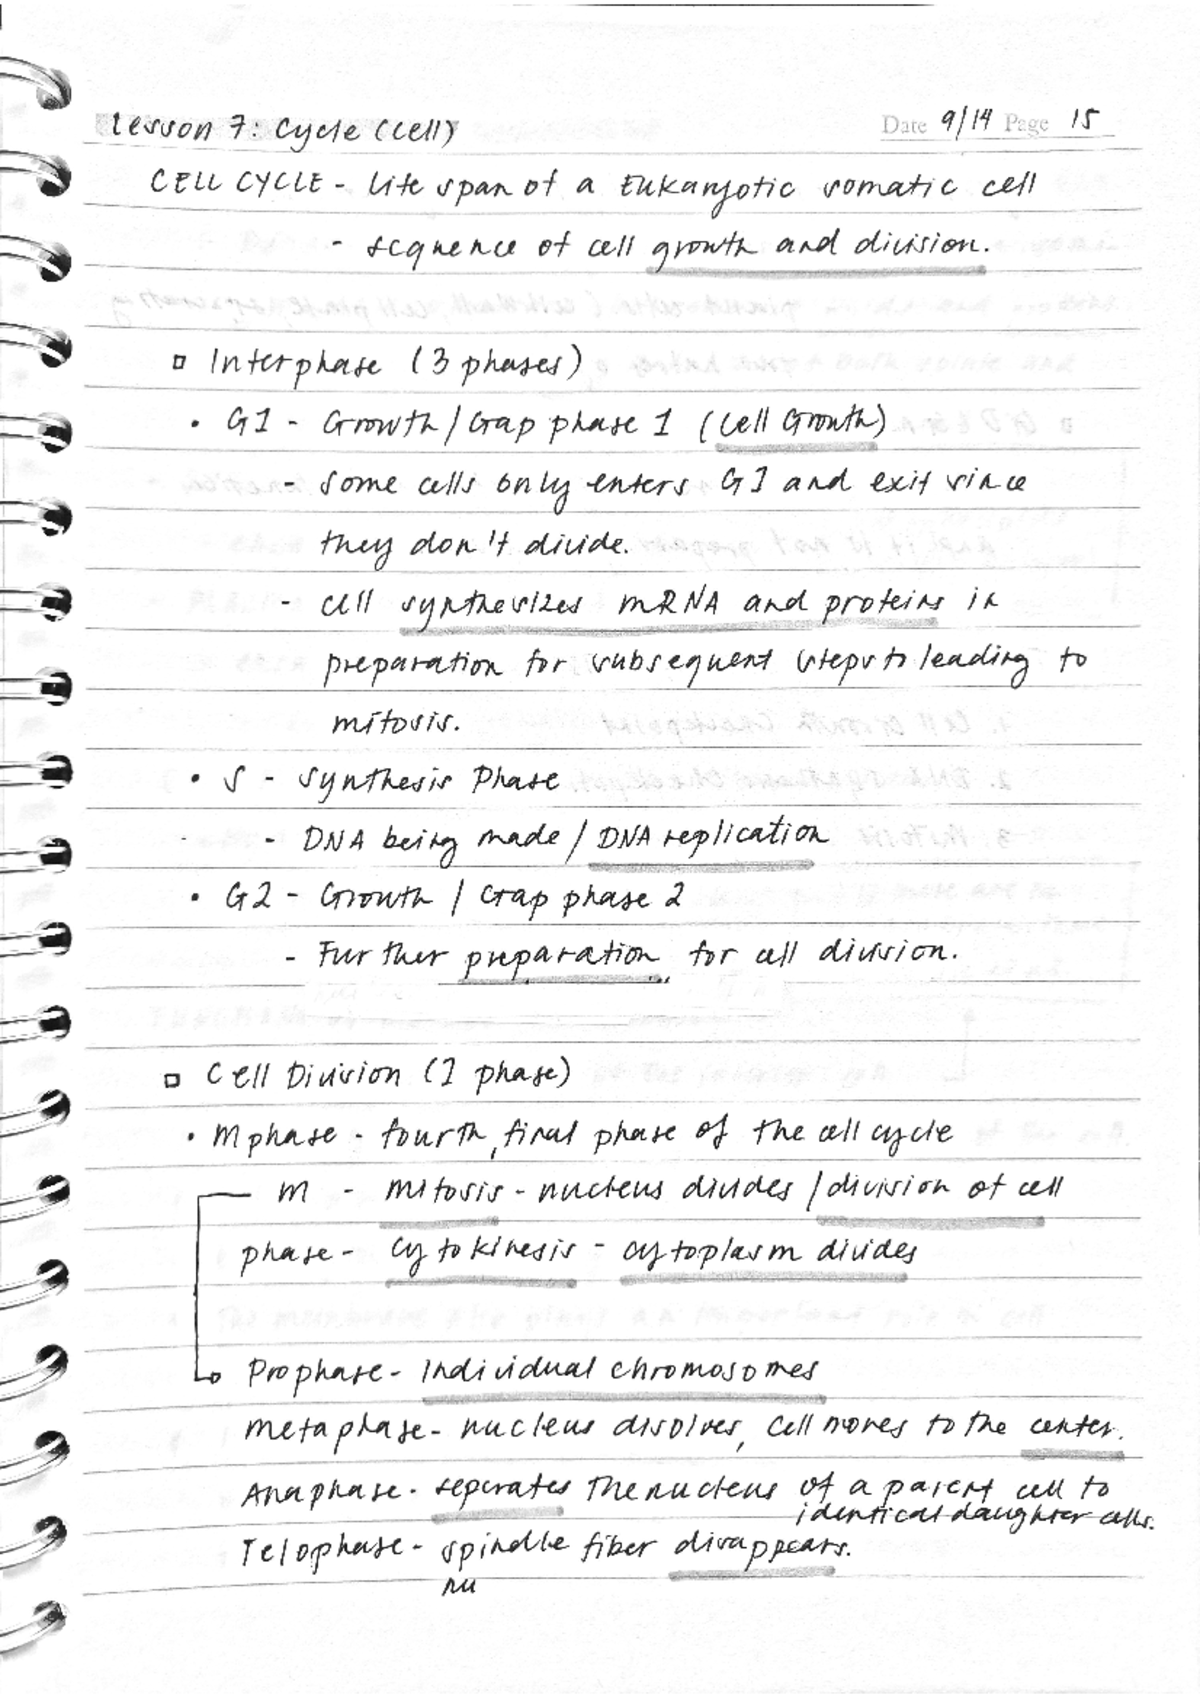 Lesson 7: Cycle (Cell)
Date 9/14 Page 15
CELL CYCLE - life span of a Eukaryotic somatic cell
- sequence of cell growth and division.
▫ Interphase (3 phases)
• G1 - Growth/Gap phase 1 (Cell Growth)
- Some cells only enters G1 and exit since
they don't divide.
- Cell synthesizes mRNA and proteins in
preparation for subsequent steps to leading to
mitosis.
• S - Synthesis Phase
- DNA being made / DNA replication
• G2 - Growth / Gap phase 2
- Further preparation for cell division.
▫ Cell Division (1 phase)
• M phase - fourth, final phase of the cell cycle
M - Mitosis - nucleus divides / division of cell
phase - Cytokinesis - cytoplasm divides
Prophase - Individual chromosomes
Metaphase - nucleus disolves, Cell moves to the center.
Anaphase - seperates the nucleus of a parent cell to
identical daughter cells.
Telophase - spindle fiber disappears.
nu